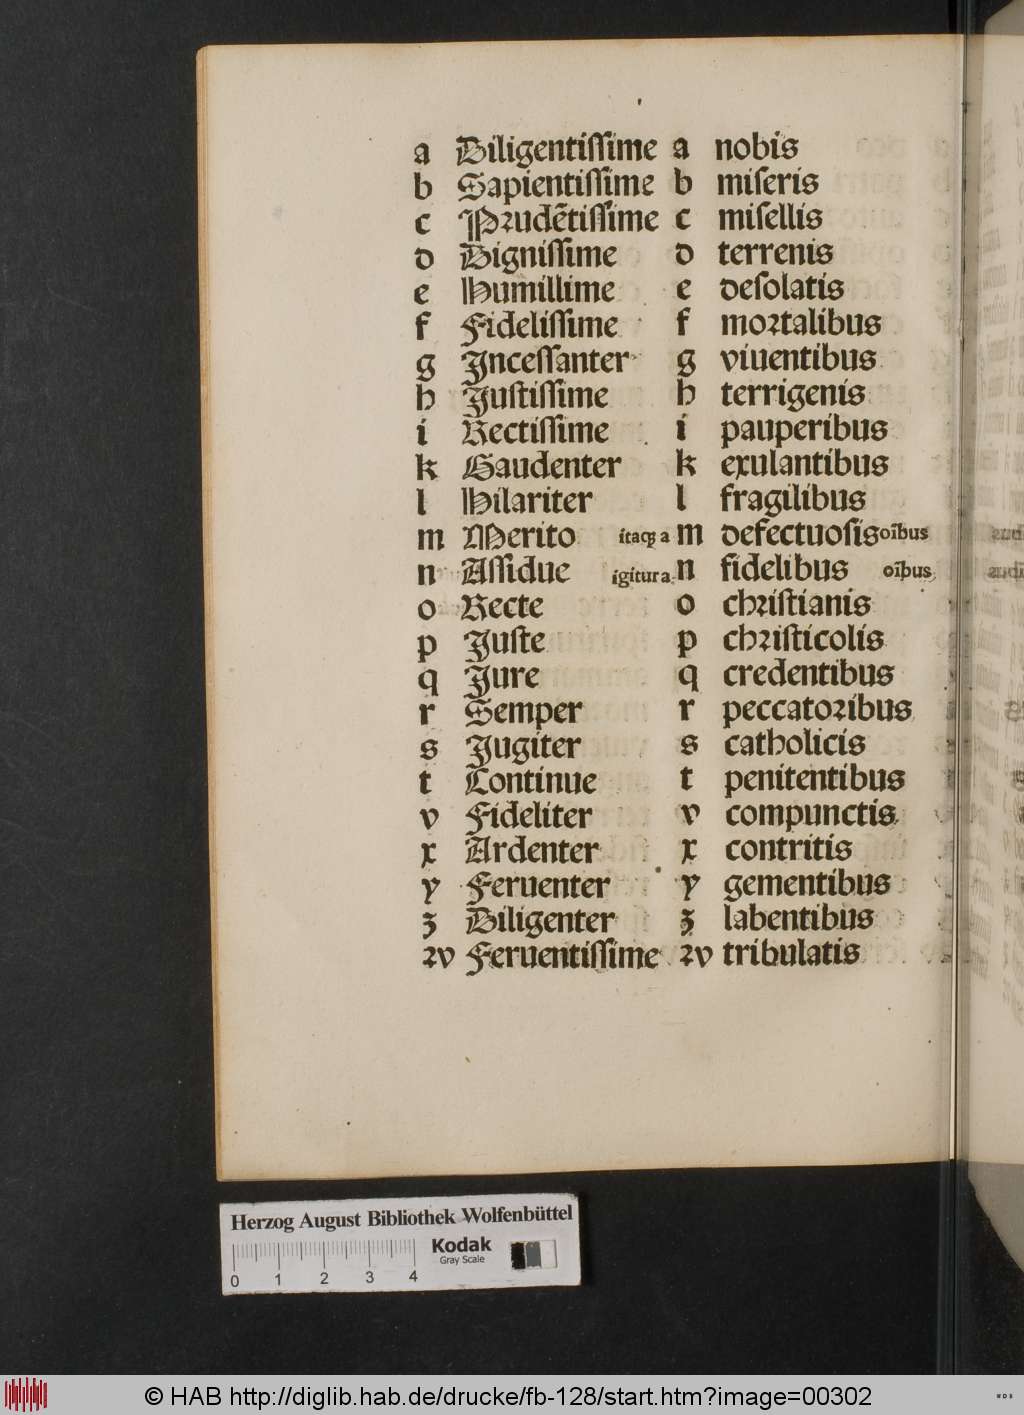 a Diligentiſſime a nobis
b Sapientiſſime b miſeris
c Prudētiſſime c miſellis
d Digniſſime d terrenis
e Humillime e deſolatis
f Fideliſſime f mortalibus
g Inceſſanter g viuentibus
h Juſtiſſime h terrigenis
i Rectiſſime i pauperibus
k Gaudenter k exulantibus
l Hilariter l fragilibus
m Merito itaqꝫ a m defectuoſis oībus
n Aſſidue igitur a n fidelibus oībus
o Recte o chriſtianis
p Juſte p chriſticolis
q Jure q credentibus
r Semper r peccatoribus
s Jugiter s catholicis
t Continue t penitentibus
v Fideliter v compunctis
x Ardenter x contritis
y Feruenter y gementibus
ʒ Diligenter ʒ labentibus
ꝛv Feruentiſſime ꝛv tribulatis
Herzog August Bibliothek Wolfenbüttel
Kodak
Gray Scale
0 1 2 3 4
© HAB http://diglib.hab.de/drucke/fb-128/start.htm?image=00302